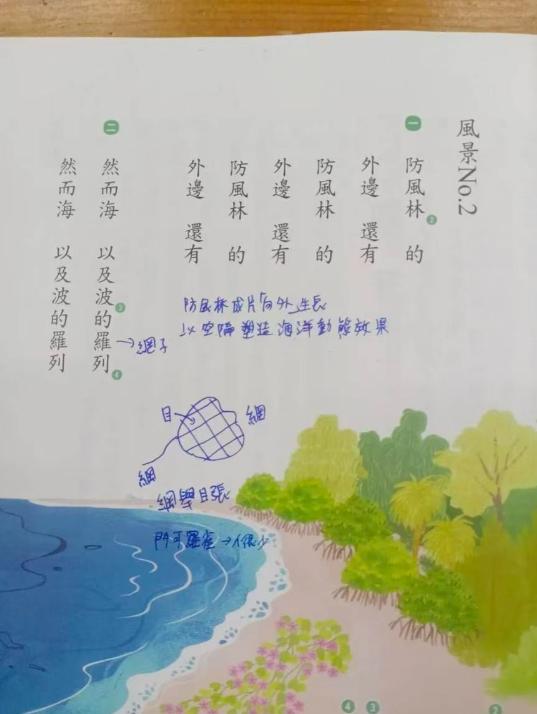 風景No.2
一 防風林 的
2
外邊 還有
防風林 的
外邊 還有
防風林 的
外邊 還有
二 然而海 以及波的羅列
3
4
然而海 以及波的羅列
防風林成片向外生長
以空隔塑造海洋動態效果
→網子
目→
網
綱
綱舉目張
門可羅雀→很少
4 3 2